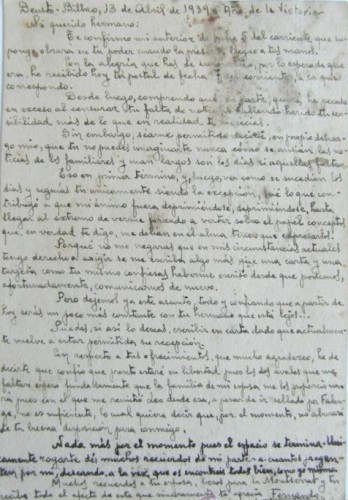 Deusto-Bilbao, 13 de Abril de 1939 - Año de la Victoria
Mi querido hermano:
Te confirmo mi anterior de fecha del corriente que su-
pongo obrara en tu poder cuando la presente llegue a tus manos.
Con la alegria que has de suponer, por lo esperada que
era, he recibido hoy tu postal de fecha del corriente, a la que
correspondo.
Desde luego, comprendo que por mi parte, quizá he pecado
en exceso al censurar tu falta de noticias hablando herido tu sen-
sibilidad más de lo que en realidad tu mereces.
Sin embargo, séame permitido decirte, en propio descar-
go mio, que tu no puedes imaginarte nunca cómo se ansian las no-
ticias de los familiares y cuan largos son los dias si aquellas faltan.
Eso en primer término y, luego, ver como se sucedian los
dias y seguias tu unicamente siendo la excepción, fué lo que con-
tribuyó a que mi ánimo fuera, deprimiéndose, deprimiéndose, hasta
llegar al extremo de verme forzado a verter sobre el papel conceptos
que, en verdad te digo, me dolian en el alma tener que expresarlos.
Porqué no me negaras que en mis circunstancias actuales
tengo derecho a exigir se me escriba algo más que una carta y una
tarjeta como tu mismo confiesas haberme escrito desde que podemos,
afortunadamente, comunicarnos de nuevo.
Pero dejemos ya este asunto, todo y confiando que a partir de
hoy serás un poco más constante con tu hermano que está lejos...
Puedes, si asi lo deseas, escribir en carta dado que actualmen-
te vuelve a estar permitida su recepción.
Con respecto a tus ofrecimientos, que mucho agradezco, he de
decirte que confio que pronto estaré en libertad pues los dos avales que me
faltan espero fundadamente que la familia de mi esposa me los
pues con el que me remitió desde esa, a pesar de ir sellado por Falan-
ge, no es suficiente, lo cual quiere decir que, por el momento, no abusaré
de tu buena disposición para conmigo.
Nada más por el momento pues el espacio se termina. Uni-
camente rogarte dés muchos recuerdos de mi parte a cuantos pregun-
ten por mi, deseando, a la vez, que os encontreis todos bien, uno yo mismo.
Muchos recuerdos a tu esposa, besos para la Montserrat y tu
recibe todo el afecto de este que sinceramente te aprecia. Fernando